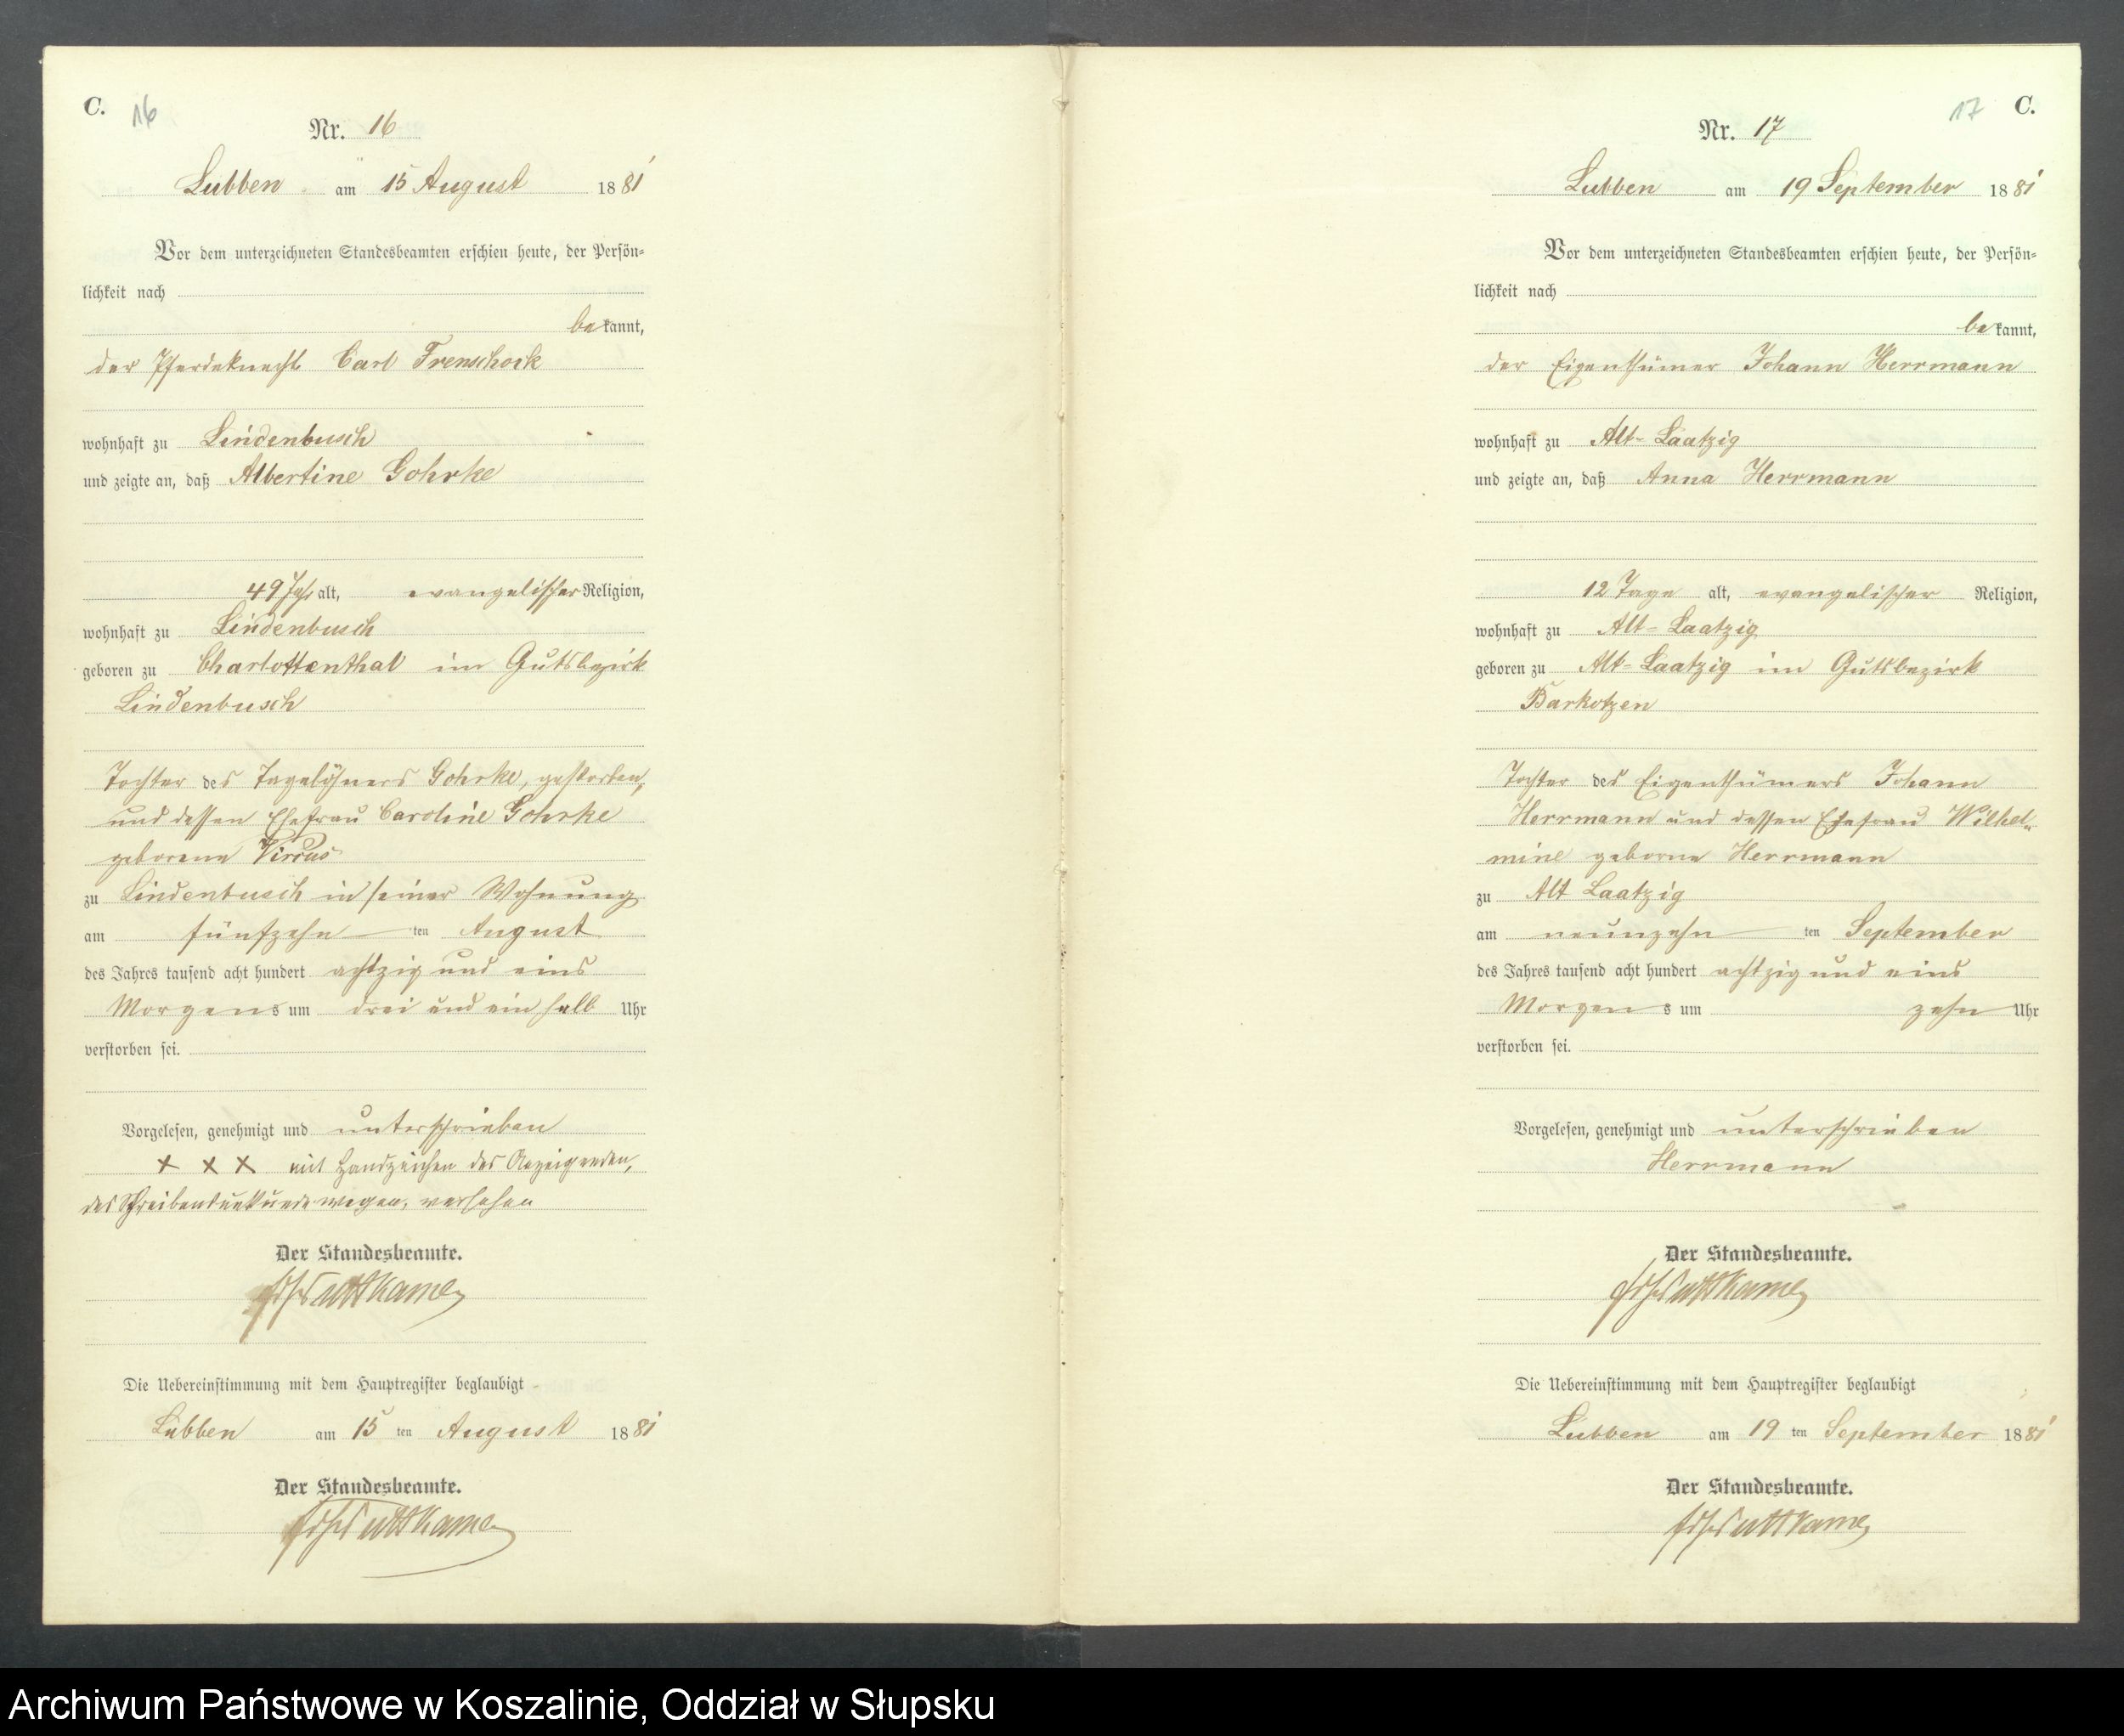 C. 16
Nr. 16
Lübben am 15 August 1881
Vor dem unterzeichneten Standesbeamten erschien heute, der Persön-
lichkeit nach
bekannt,
der Pferdeknecht Carl Frenschock
wohnhaft zu Lindenbusch
und zeigte an, daß Albertine Gohrke
49 Jahr alt, evangelischer Religion,
wohnhaft zu Lindenbusch
geboren zu Charlottenthal im Gutsbezirk
Lindenbusch
Tochter des Tagelöhners Gohrke, gestorben,
und dessen Ehefrau Caroline Gohrke
geborene Virrus
zu Lindenbusch in seiner Wohnung
am fünfzehn ten August
des Jahres tausend acht hundert achtzig und eins
Morgens um drei und ein halb Uhr
verstorben sei.
Vorgelesen, genehmigt und unterschrieben
+ x x mit Handzeichen des Anzeigenden,
des Schreibensunkunde wegen, versehen
Der Standesbeamte.
Puttkamer
Die Uebereinstimmung mit dem Hauptregister beglaubigt
Lübben am 15 ten August 1881
Der Standesbeamte.
Puttkamer
17 C.
Nr. 17
Lübben am 19 September 1881
Vor dem unterzeichneten Standesbeamten erschien heute, der Persön-
lichkeit nach
bekannt,
der Eigenthümer Johann Herrmann
wohnhaft zu Alt-Laatzig
und zeigte an, daß Anna Herrmann
12 Tage alt, evangelischer Religion,
wohnhaft zu Alt-Laatzig
geboren zu Alt-Laatzig im Gutsbezirk
Barkotzen
Tochter des Eigenthümers Johann
Herrmann und dessen Ehefrau Wilhel-
mine geborne Herrmann
zu Alt Laatzig
am neunzehn ten September
des Jahres tausend acht hundert achtzig und eins
Morgens um zehn Uhr
verstorben sei.
Vorgelesen, genehmigt und unterschrieben
Herrmann
Der Standesbeamte.
Puttkamer
Die Uebereinstimmung mit dem Hauptregister beglaubigt
Lübben am 19 ten September 1881
Der Standesbeamte.
Puttkamer
Archiwum Państwowe w Koszalinie, Oddział w Słupsku